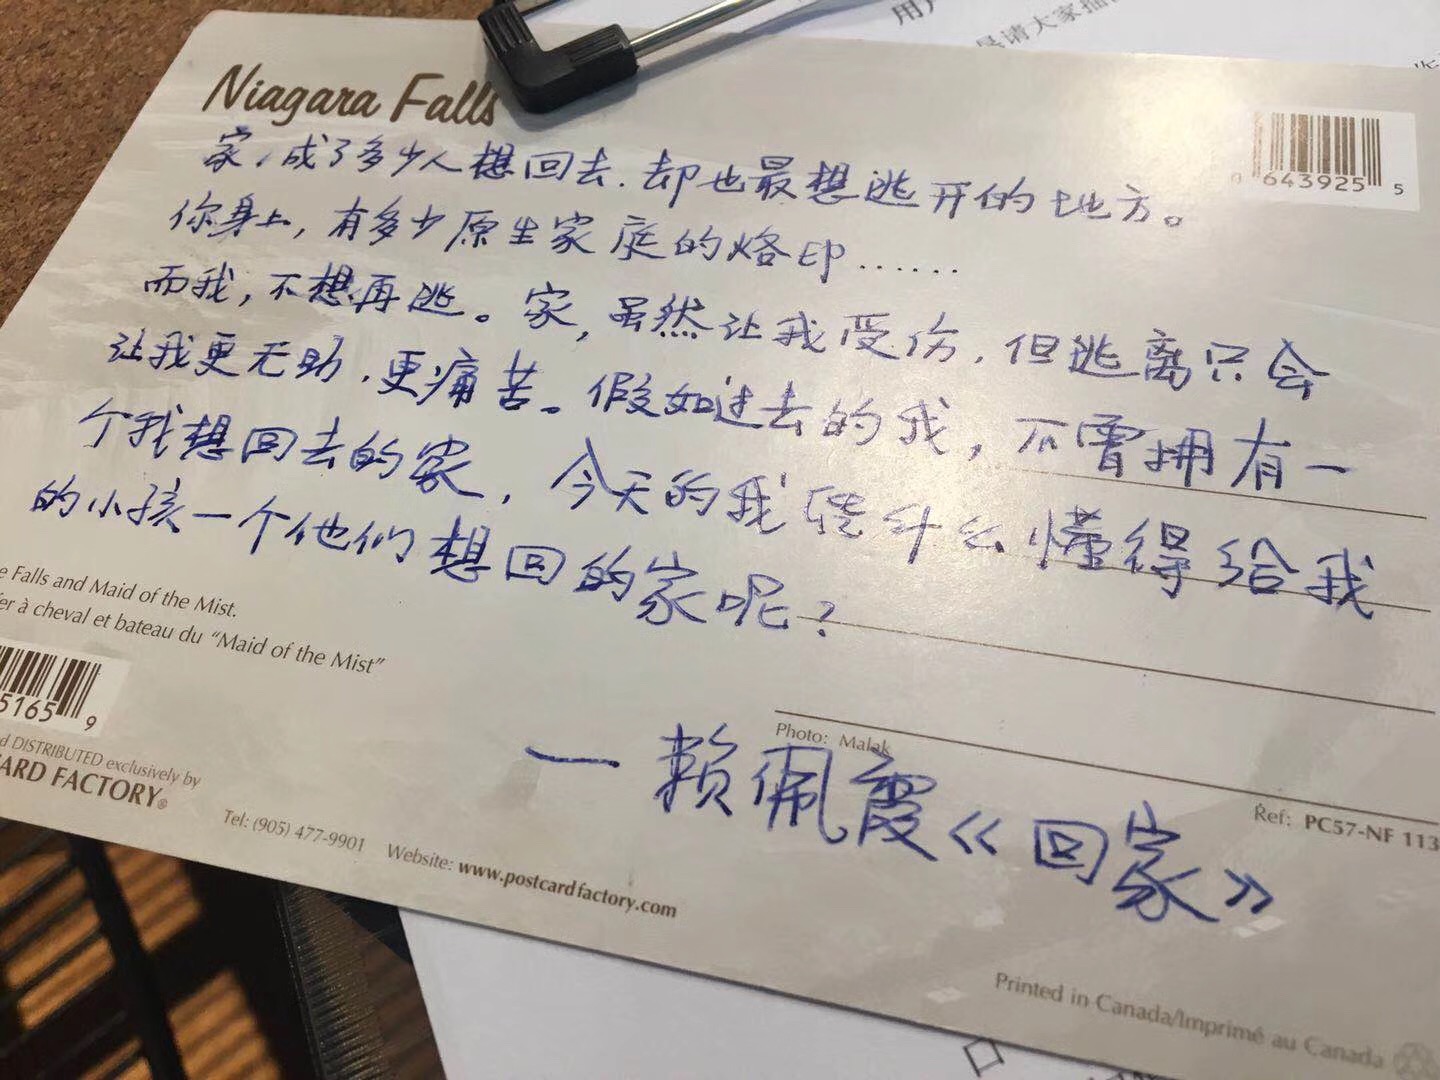 用户
是请大家描
Niagara Falls
0 643925 5
家,成了多少人想回去.却也最想逃开的地方。
你身上,有多少原生家庭的烙印……
而我,不想再逃。家,虽然让我受伤.但逃离只会
让我更无助.更痛苦。假如过去的我,不曾拥有一
个我想回去的家.今天的我凭什么懂得给我
的小孩一个他们想回的家呢?
e Falls and Maid of the Mist.
fer à cheval et bateau du "Maid of the Mist"
5165 9
d DISTRIBUTED exclusively by
CARD FACTORY®
Tel: (905) 477-9901 Website: www.postcardfactory.com
Photo: Malak
Ref: PC57-NF 113
—赖佩霞《回家》
Printed in Canada/Imprimé au Canada